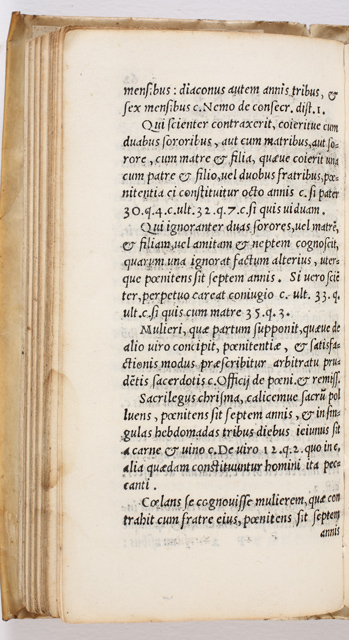 mensibus : diaconus autem annis tribus, &
sex mensibus c. Nemo de consecr. dist. 1.
Qui scienter contraxerit, coieritue cum
duabus sororibus, aut cum matribus, aut so-
rore, cum matre & filia, quæue coierit una
cum patre & filio, uel duobus fratribus, pœ-
nitentia ei constituitur octo annis c. si pater
30. q. 4. c. ult. 32. q. 7. c. si quis uiduam.
Qui ignoranter duas sorores, uel matrē,
& filiam, uel amitam & neptem cognoscit,
quarum una ignorat factum alterius, uter-
que pœnitens sit septem annis. Si uero sciē
ter, perpetuo careat coniugio c. ult. 33. q.
ult. c. si quis cum matre 35. q. 3.
Mulieri, quæ partum supponit, quæue de
alio uiro concipit, pœnitentiæ, & satisfa-
ctionis modus præscribitur arbitratu pru-
dētis sacerdotis c. Officij de pœni. & remiss.
Sacrilegus chrisma, calicemue sacrū pol
luens, pœnitens sit septem annis, & in sin-
gulas hebdomadas tribus diebus ieiunus sit
a carne & uino c. De uiro 12. q. 2. quo in c.
alia quædam constituuntur homini ita pec-
canti.
Cœlans se cognouisse mulierem, quæ con
trahit cum fratre eius, pœnitens sit septem
annis